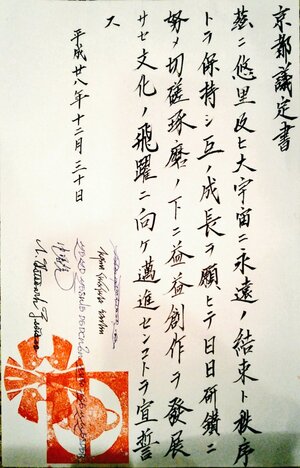 京都ノ議定書
茲ニ悠里及ヒ大宇宙ニ永遠ノ結束ト秩序
トヲ保持シ互ノ成長ヲ願ヒテ日日研鑽ニ
努メ切磋琢磨ノ下ニ益益創作ヲ發展
サセ文化ノ飛躍ニ向ケ邁進センコトヲ宣誓
ス
平成廿八年十二月三十日